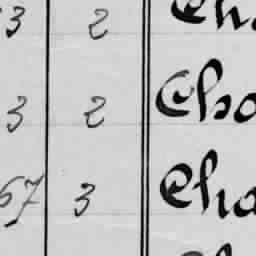 3 2 Cha
3 2 Cho
67 3 Cha